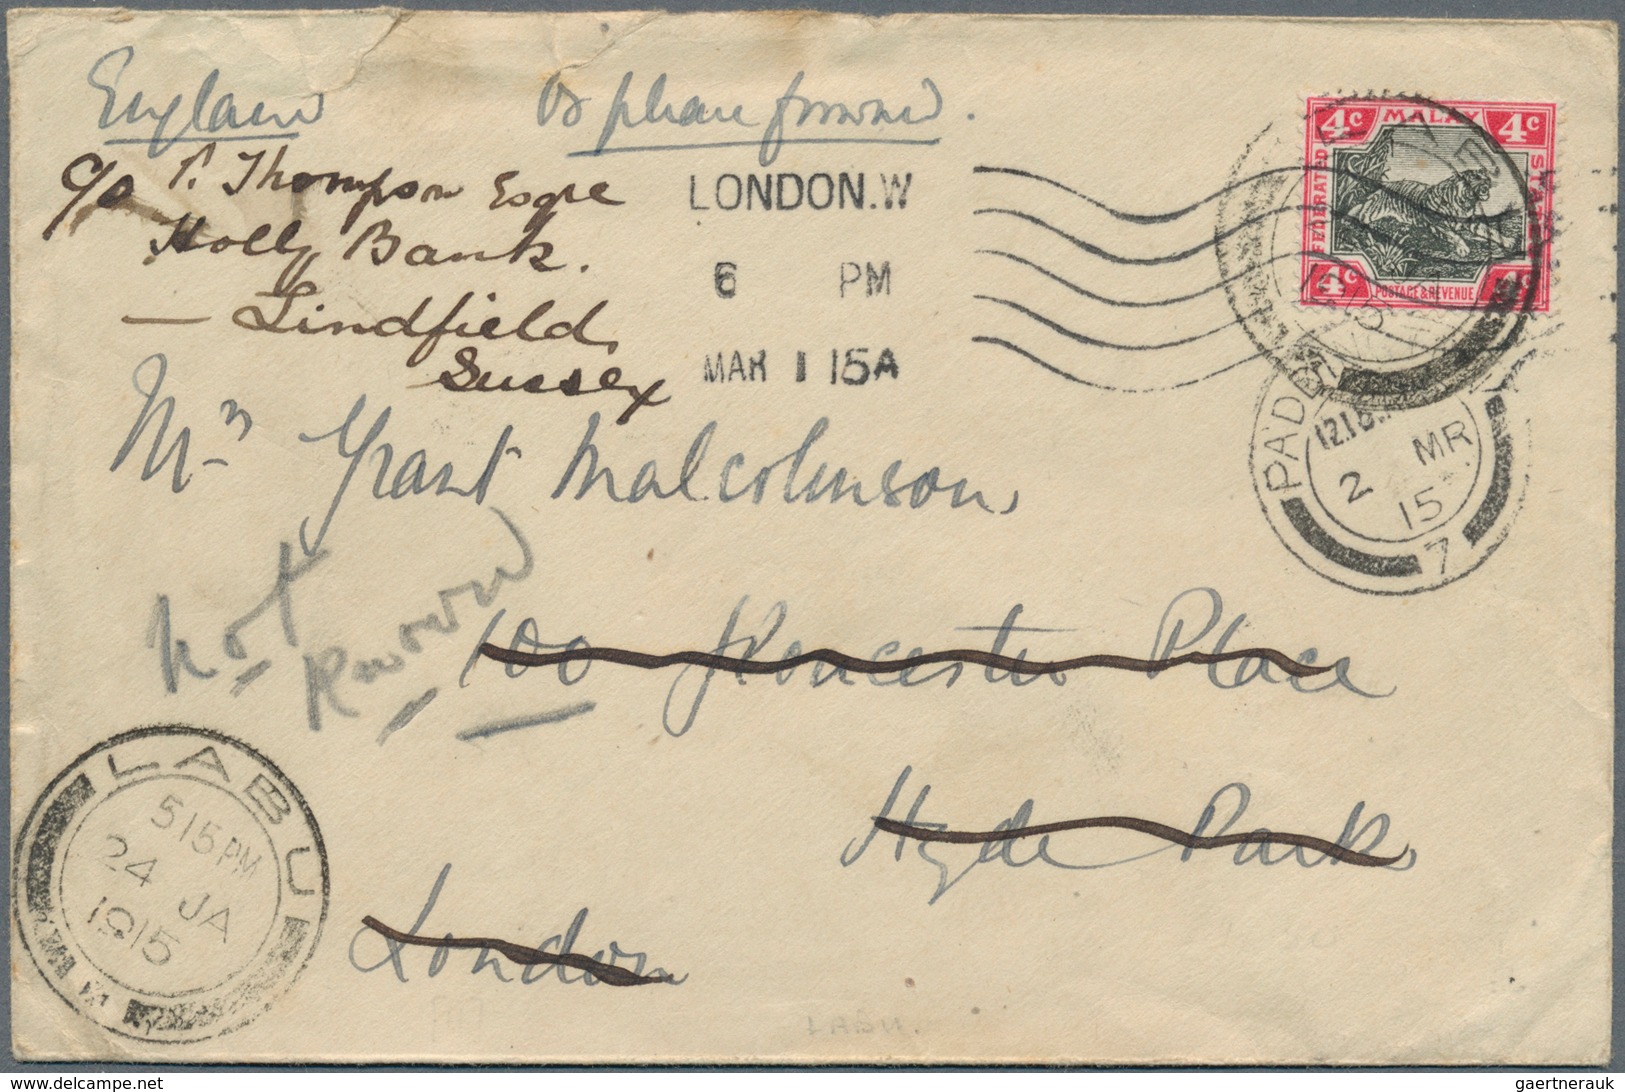 England
or please forward.
c/o T. Thompson Esqre
Holly Bank.
— Lindfield,
Sussex
LONDON.W
6 PM
MAR 1 15A
4c MALAY 4c
FEDERATED
STATES
4c POSTAGE & REVENUE 4c
PADD
12.15
2 MR
15
7
Mrs Grant Malcolmson,
not
known
100 Gloucester Place
Hyde Park
London
LABU
515PM
24 JA
1915
gaertnerauk